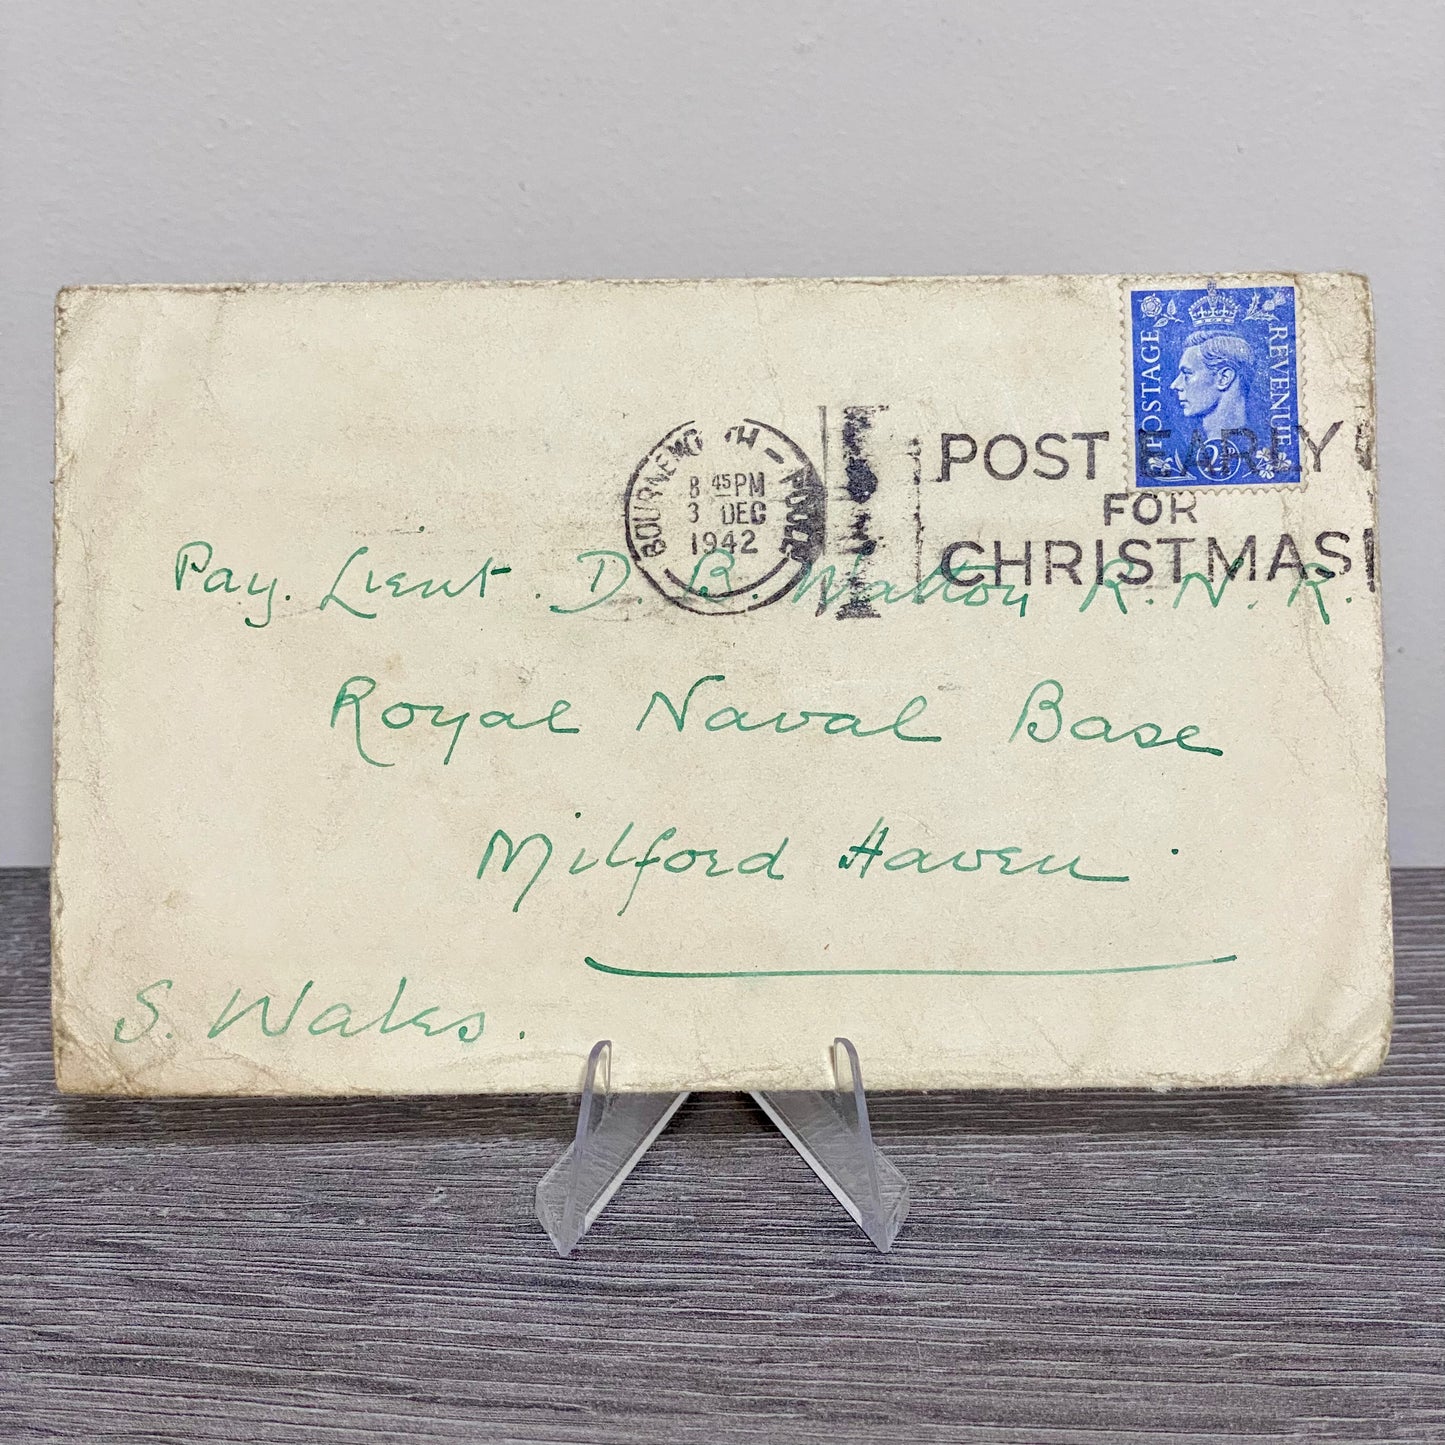 POSTAGE REVENUE
2½D
BOURNEMOUTH – POOLE
8 45 PM
3 DEC
1942
POST EARLY
FOR
CHRISTMAS
Pay. Lieut. D. B. Walton R.N.R.
Royal Naval Base
Milford Haven.
S. Wales.